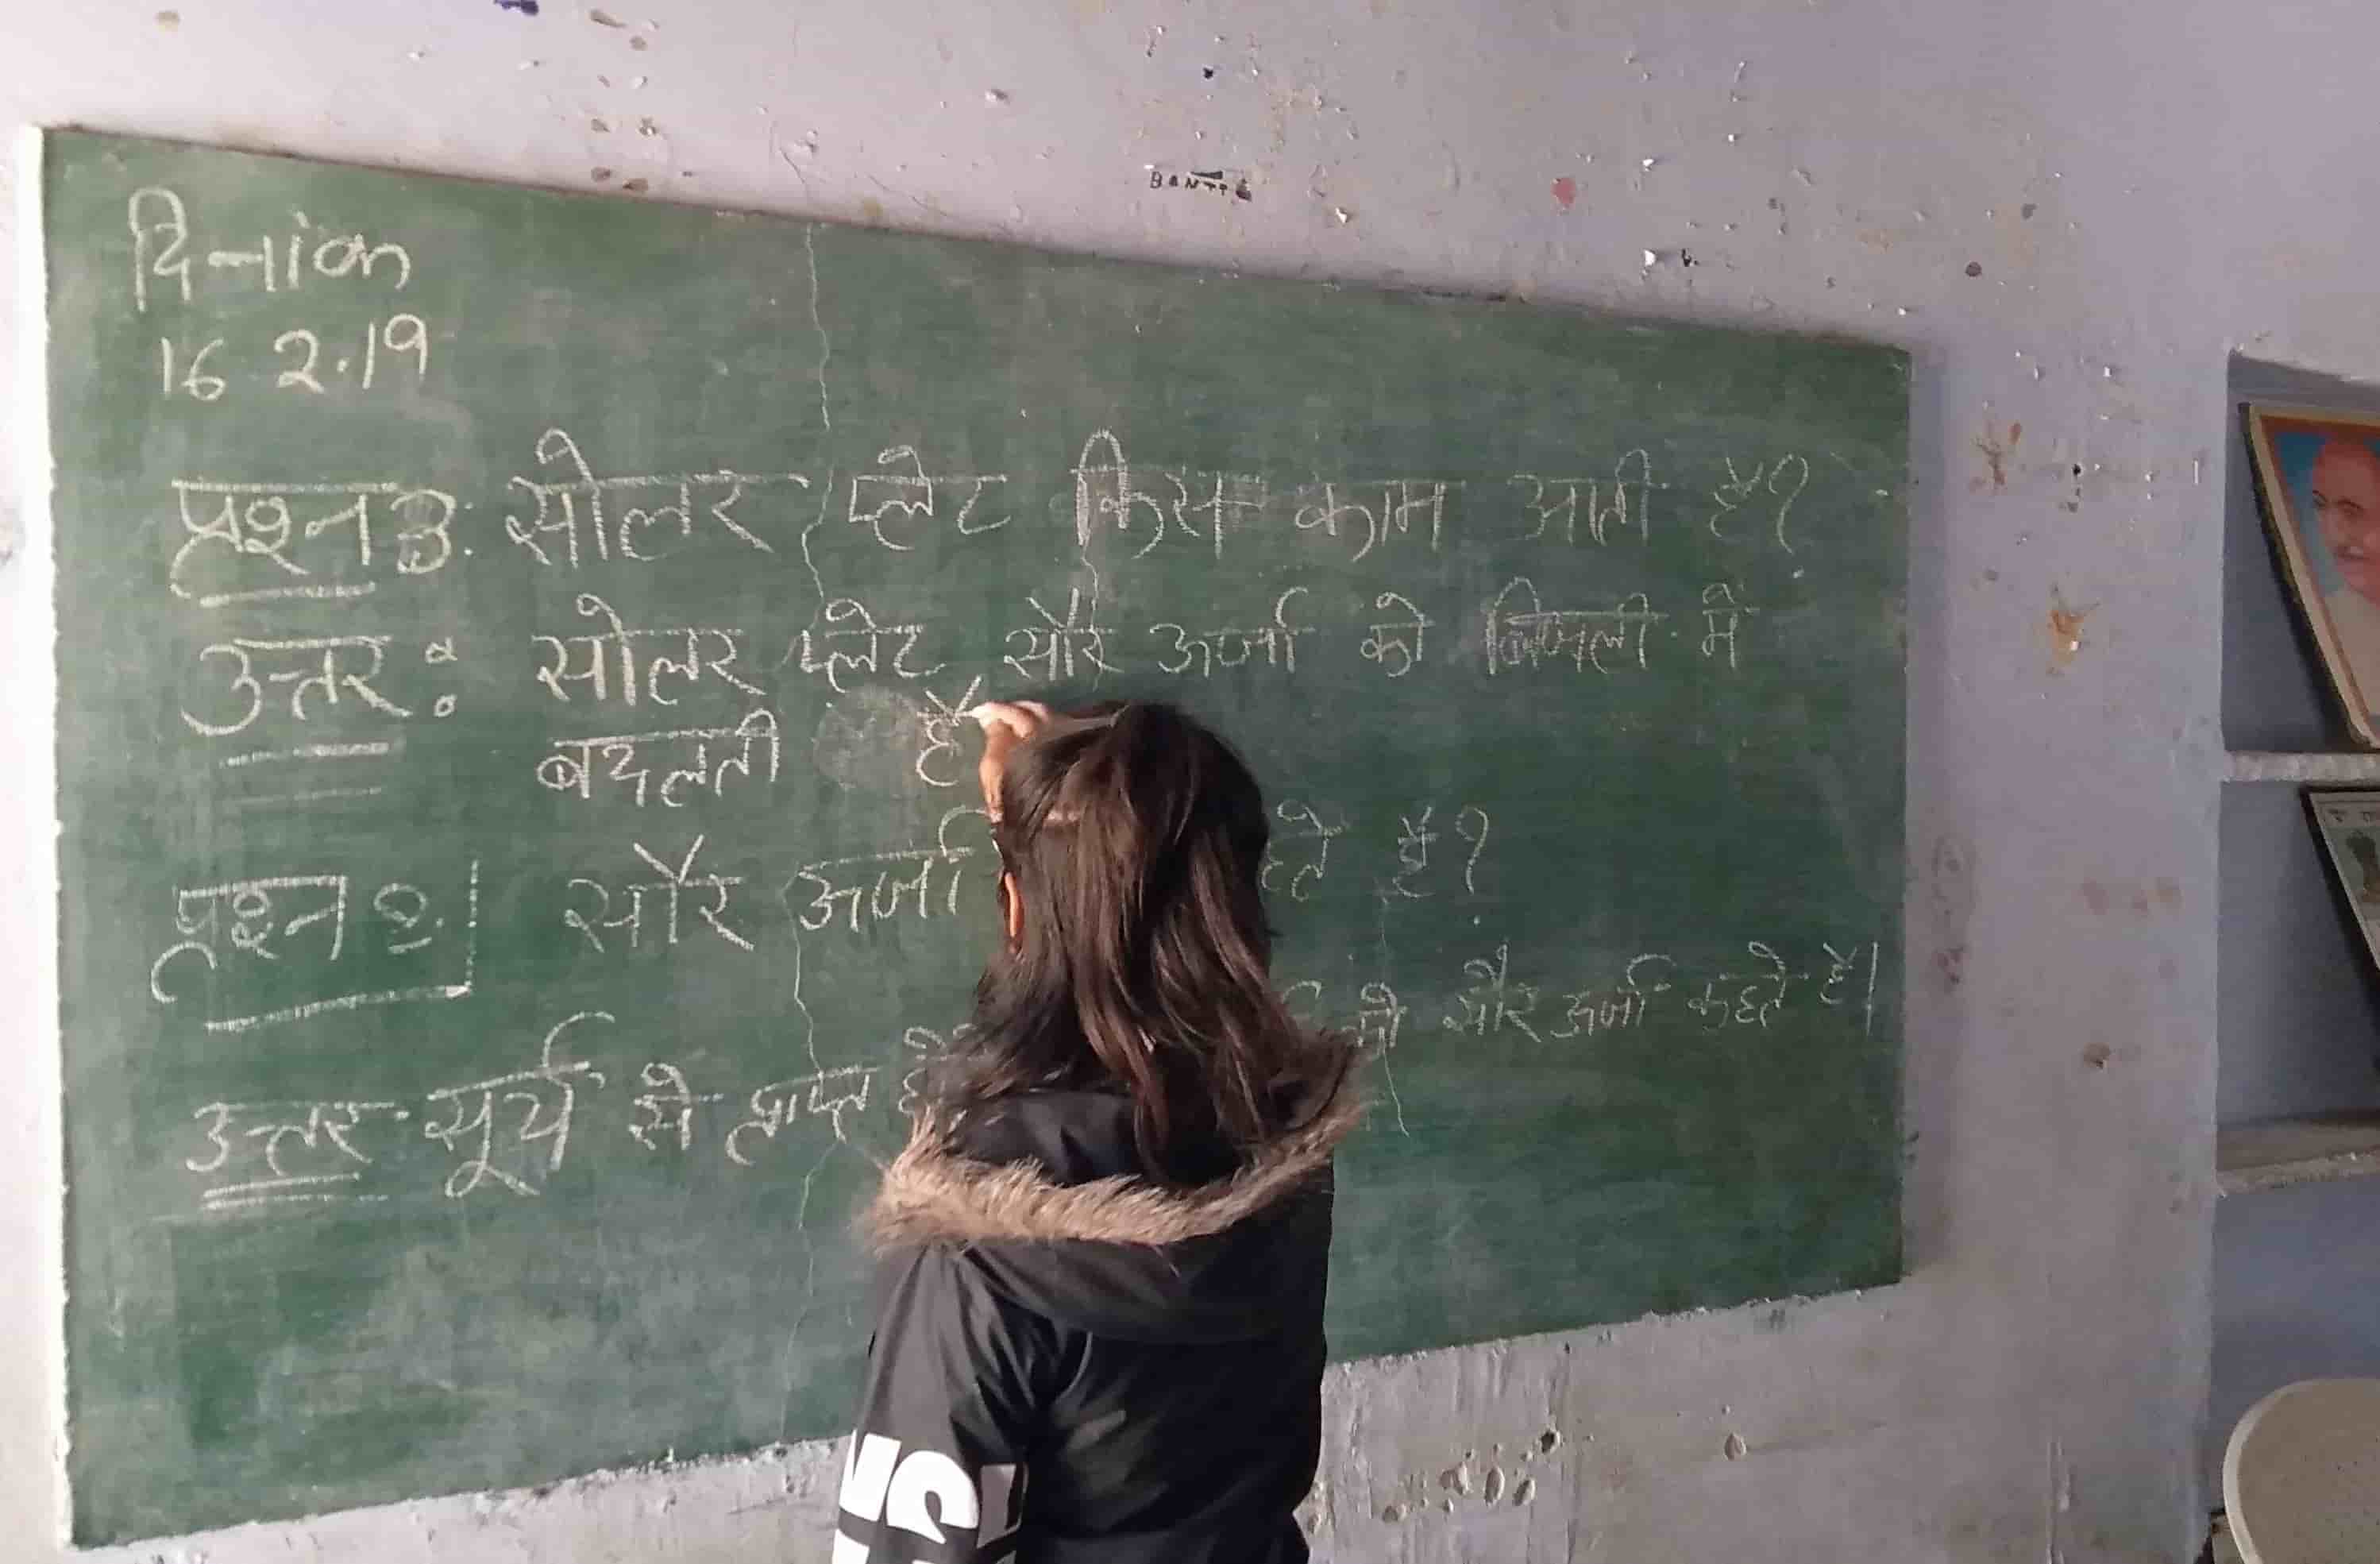 BANTI
दिनांक
16 2.19
प्रश्न 3: सोलर प्लेट किस काम आती है?
उत्तर: सोलर प्लेट सौर ऊर्जा को बिजली में
बदलती है
प्रश्न 2. सौर ऊर्जा है?
उत्तर सूर्य से प्राप्त को सौर ऊर्जा कहते है।